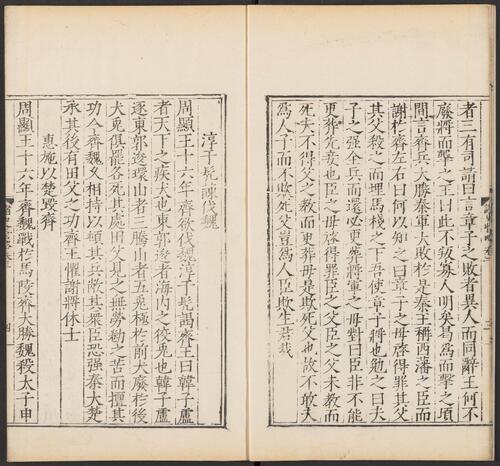 者三有司請曰言章子之敗者異人而同辭王何不
廢將而擊之王曰此不叛寡人明矣曷爲而擊之頃
間言齊兵大勝秦軍大敗於是秦王稱西藩之臣而
謝於齊左右曰何以知之曰章子之母啓得罪其父
其父殺之而埋馬棧之下吾使章子將也勉之曰夫
子之强全兵而還必更葬將軍之母對曰臣非不能
更葬先妾也臣之母啓得罪臣之父臣之父未教而
死夫不得父之教而更葬母是欺死父也故不敢夫
爲人子而不欺死父豈爲人臣欺生君哉
淳于髡諫伐魏
周顯王十六年齊欲伐魏淳于髡謂齊王曰韓子盧
者天下之疾犬也東郭逡者海内之狡兔也韓子盧
逐東郭逡環山者三騰山者五兔極於前犬廢於後
犬兔俱罷各死其處田父見之無勞勌之苦而擅其
功今齊魏久相持以頓其兵敝其衆臣恐强秦大楚
承其後有田父之功齊王懼謝將休士
惠施以楚毀齊
周顯王十六年齊魏戰於馬陵齊大勝魏殺太子申